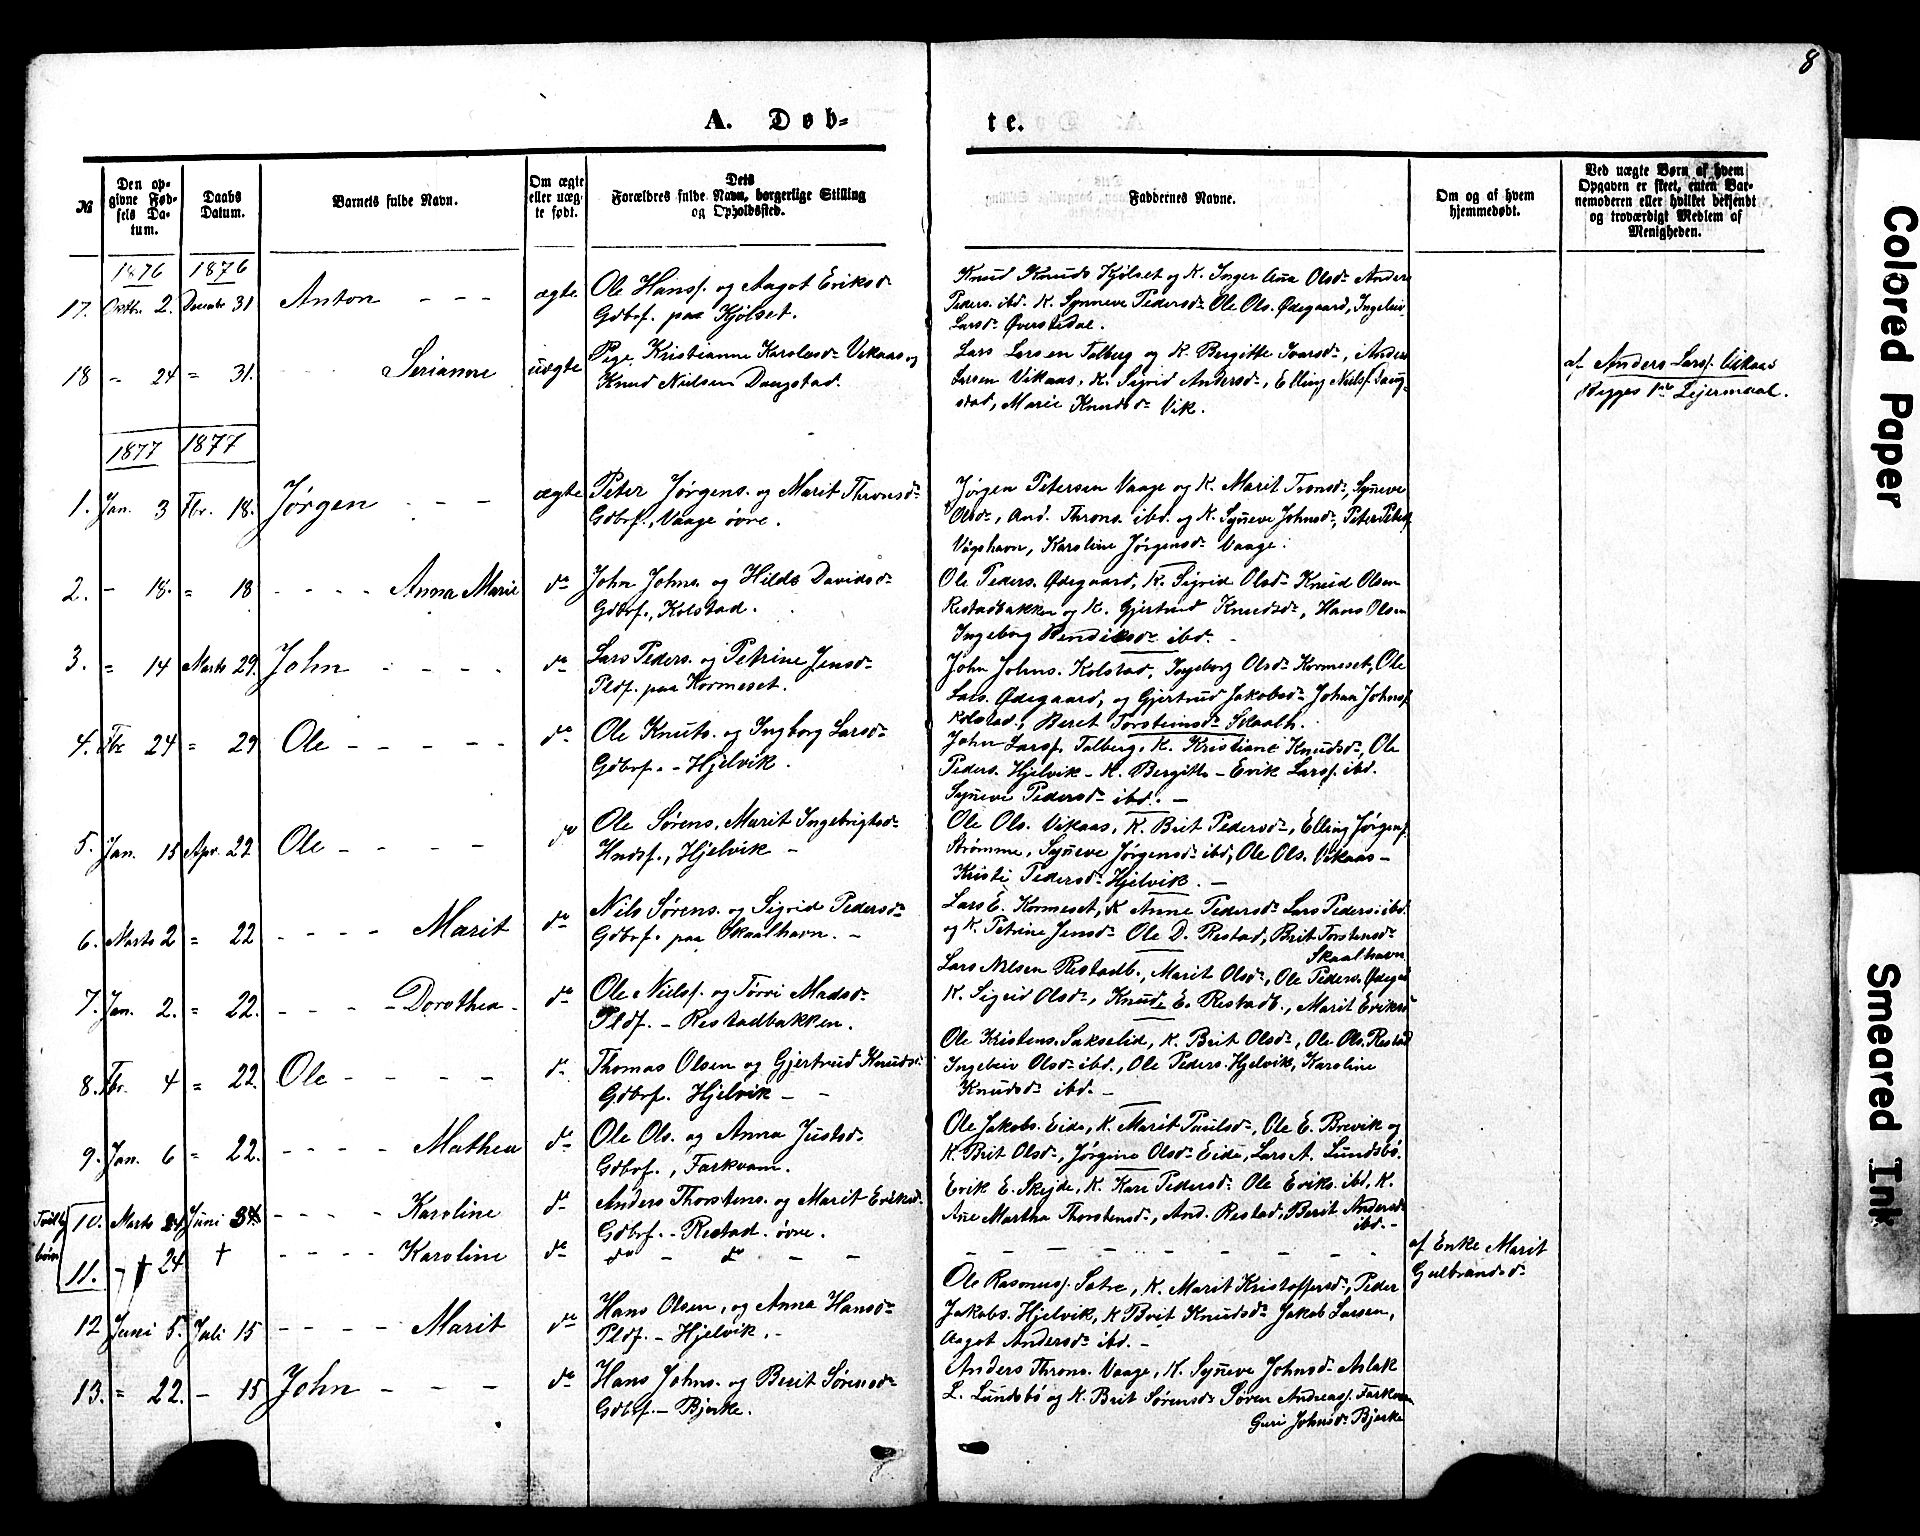 8
A. Døb-
te.
№
Den op-
givne Fød-
sels Da-
tum.
Daabs
Datum.
Barnets fulde Navn.
Om ægte
eller uæg-
te født.
Dets
Forældres fulde Navn, borgerlige Stilling
og Opholdssted.
Faddernes Navne.
Om og af hvem
hjemmedøbt.
Ved uægte Børn af hvem
Opgaven er skeet, enten Bar-
nemoderen eller hvilket bekjendt
og troværdigt Medlem af
Menigheden.
1876 1876
17. Oktbr. 2. Decmbr 31 Anton - - - ægte
Ole Hansf. og Aagot Eriksd
Gdbrf. paa Kjölset.
Knud Knuds Kjölset og K. Inger Ane Olsd. Anders
Peders. ibd. K. Synneve Pedersd. Ole Ols. Ødegaard, Ingebor
Larsd. Øverstedal.
18 " 24 = 31. Serianne uægte
Pige Kristianne Karolusd. Vikaas og
Knud Nielsen Daugstad.
Lars Larsen Talberg og K. Bergitte Ivarsd., Anders
Larsen Vikaas, K. Sigrid Andersd., Elling Nielsf. Daug-
stad, Marie Knudsd. Vik.
af Anders Larsf. Vikaas
Begges 1ste Lejermaal.
1877 1877
1. Jan. 3 Fbr. 18. Jørgen - - - ægte
Peter Jørgens. og Marit Thronsd.
Gdbrf., Vaage øvre.
Jørgen Petersen Vaage og K. Marit Tronsd., Syneve
Olsd., And. Throns. ibd. og K. Syneve Johnsd., Peter Petersf.
Vågshavn, Karoline Jørgensd. Vaage.
2. - 18. = 18 - - - - Anna Marie do
John Johns. og Hilde Davidsd.
Gdbrf., Kolstad.
Ole Peders. Ødegaard, K. Sigrid Olsd. Knud Olsen
Restadbakken og K. Gjertrud Knudsd., Hans Olsen
Ingeborg Bendiksd. ibd. -
3. = 14 Marts 29. John - - - - do
Lars Peders. og Petrine Jensd.
Pldf. paa Kormeset.
John Johns. Kolstad, Ingeborg Olsd. Kormeset, Ole
Lars. Ødegaard, og Gjertrud Jakobsd. Johan Johnsf.
Kolstad, Beret Torsteinsd. Skaalh.
4. Fbr 24 = 29 Ole - - - - - do
Ole Knuts. og Ingborg Larsd.
Gdbrf. - Hjelvik.
John Larsf. Talberg, K. Kristiane Knudsd., Ole
Peders. Hjelvik - K. Bergitte - Erik Larsf. ibd.
Syneve Pedersd. ibd. -
5. Jan. 15 Apr. 22 Ole - - - - do
Ole Sørens. Marit Ingebrigtsd.
Hndsf., Hjelvik -
Ole Ols. Vikaas, K. Brit Pedersd., Elling Jørgensf.
Strømme, Syneve Jørgensd. ibd, Ole Ols. Vikaas -
Kristi Pedersd. Hjelvik. -
6. Marts 2 = 22 - - - - Marit do
Nils Sørens. og Sigrid Pedersd.
Gdbrf. paa Skaalhavn. -
Lars E. Kormeset, K Anne Pedersd. Lars Peders. ibd.
og K. Petrine Jensd. Ole D. Restad, Brit Torstensd.
Skaalhavn
7. Jan. 2. = 22. - - - - Dorothea - do
Ole Nielsf. og Torri Madsd.
Pldf. - Restadbakken.
Lars Nilsen Restadb., Marit Olsd., Ole Peders. Ødegrd
K. Sigrid Olsd., Knud E. Restadb., Marit Eriksd
8. Fbr. 4 = 22. Ole - - - - do
Thomas Olsen og Gjertrud Knudsd.
Gdbrf. Hjelvik - -
Ole Kristens. Sakselid, K. Brit Olsd., Ole Ols. Restad
Ingebor Olsd. ibd., Ole Peders. Hjelvik, Karoline
Knudsd. ibd. -
9. Jan. 6 = 22. - - - - Mathea do
Ole Ols. og Anna Justsd.
Gdbrf., Farkvam.
Ole Jakobs. Eide, K. Marit Paulsd., Ole E. Brevik og
K. Brit Olsd., Jørgine Olsd. Eide, Lars A. Lundsbö.
10. Marts 24 Juni 24 - - - - Karoline do
Anders Thorstens. og Marit Eriksd.
Gdbrf. - Restad øvre.
Erik E. Skejde, K. Kari Pedersd. Ole Eriks. ibd, K.
Ane Martha Thorstensd., And. Restad, Berit Andersd
ibd. -
11. - † 24 † - - - - Karoline do
do - do - -
- - - - - - - -
af Enke Marit
Gulbrandsd.
12 Juni 5. Juli 15 - - - - Marit do
Hans Olsen, og Anna Hansd.
Pldf. - Hjelvik. -
Ole Rasmusf. Sætre, K. Marit Kristoffersd., Peder
Jakobs. Hjelvik, K Brit Knudsd. Jakob Larsen,
Aagot Andersd. ibd. -
13. = 22. - 15 John - - - do
Hans Johns. og Berit Sørensd.
Gdbrf. - Bjerke.
Anders Throns. Vaage, K. Syneve Johnsd. Aslak
L. Lundsbö og K. Brit Sørensd. Søren Andreasf. Farkvam
Guri Johnsd. Bjerke
Colored Paper
Smeared Ink